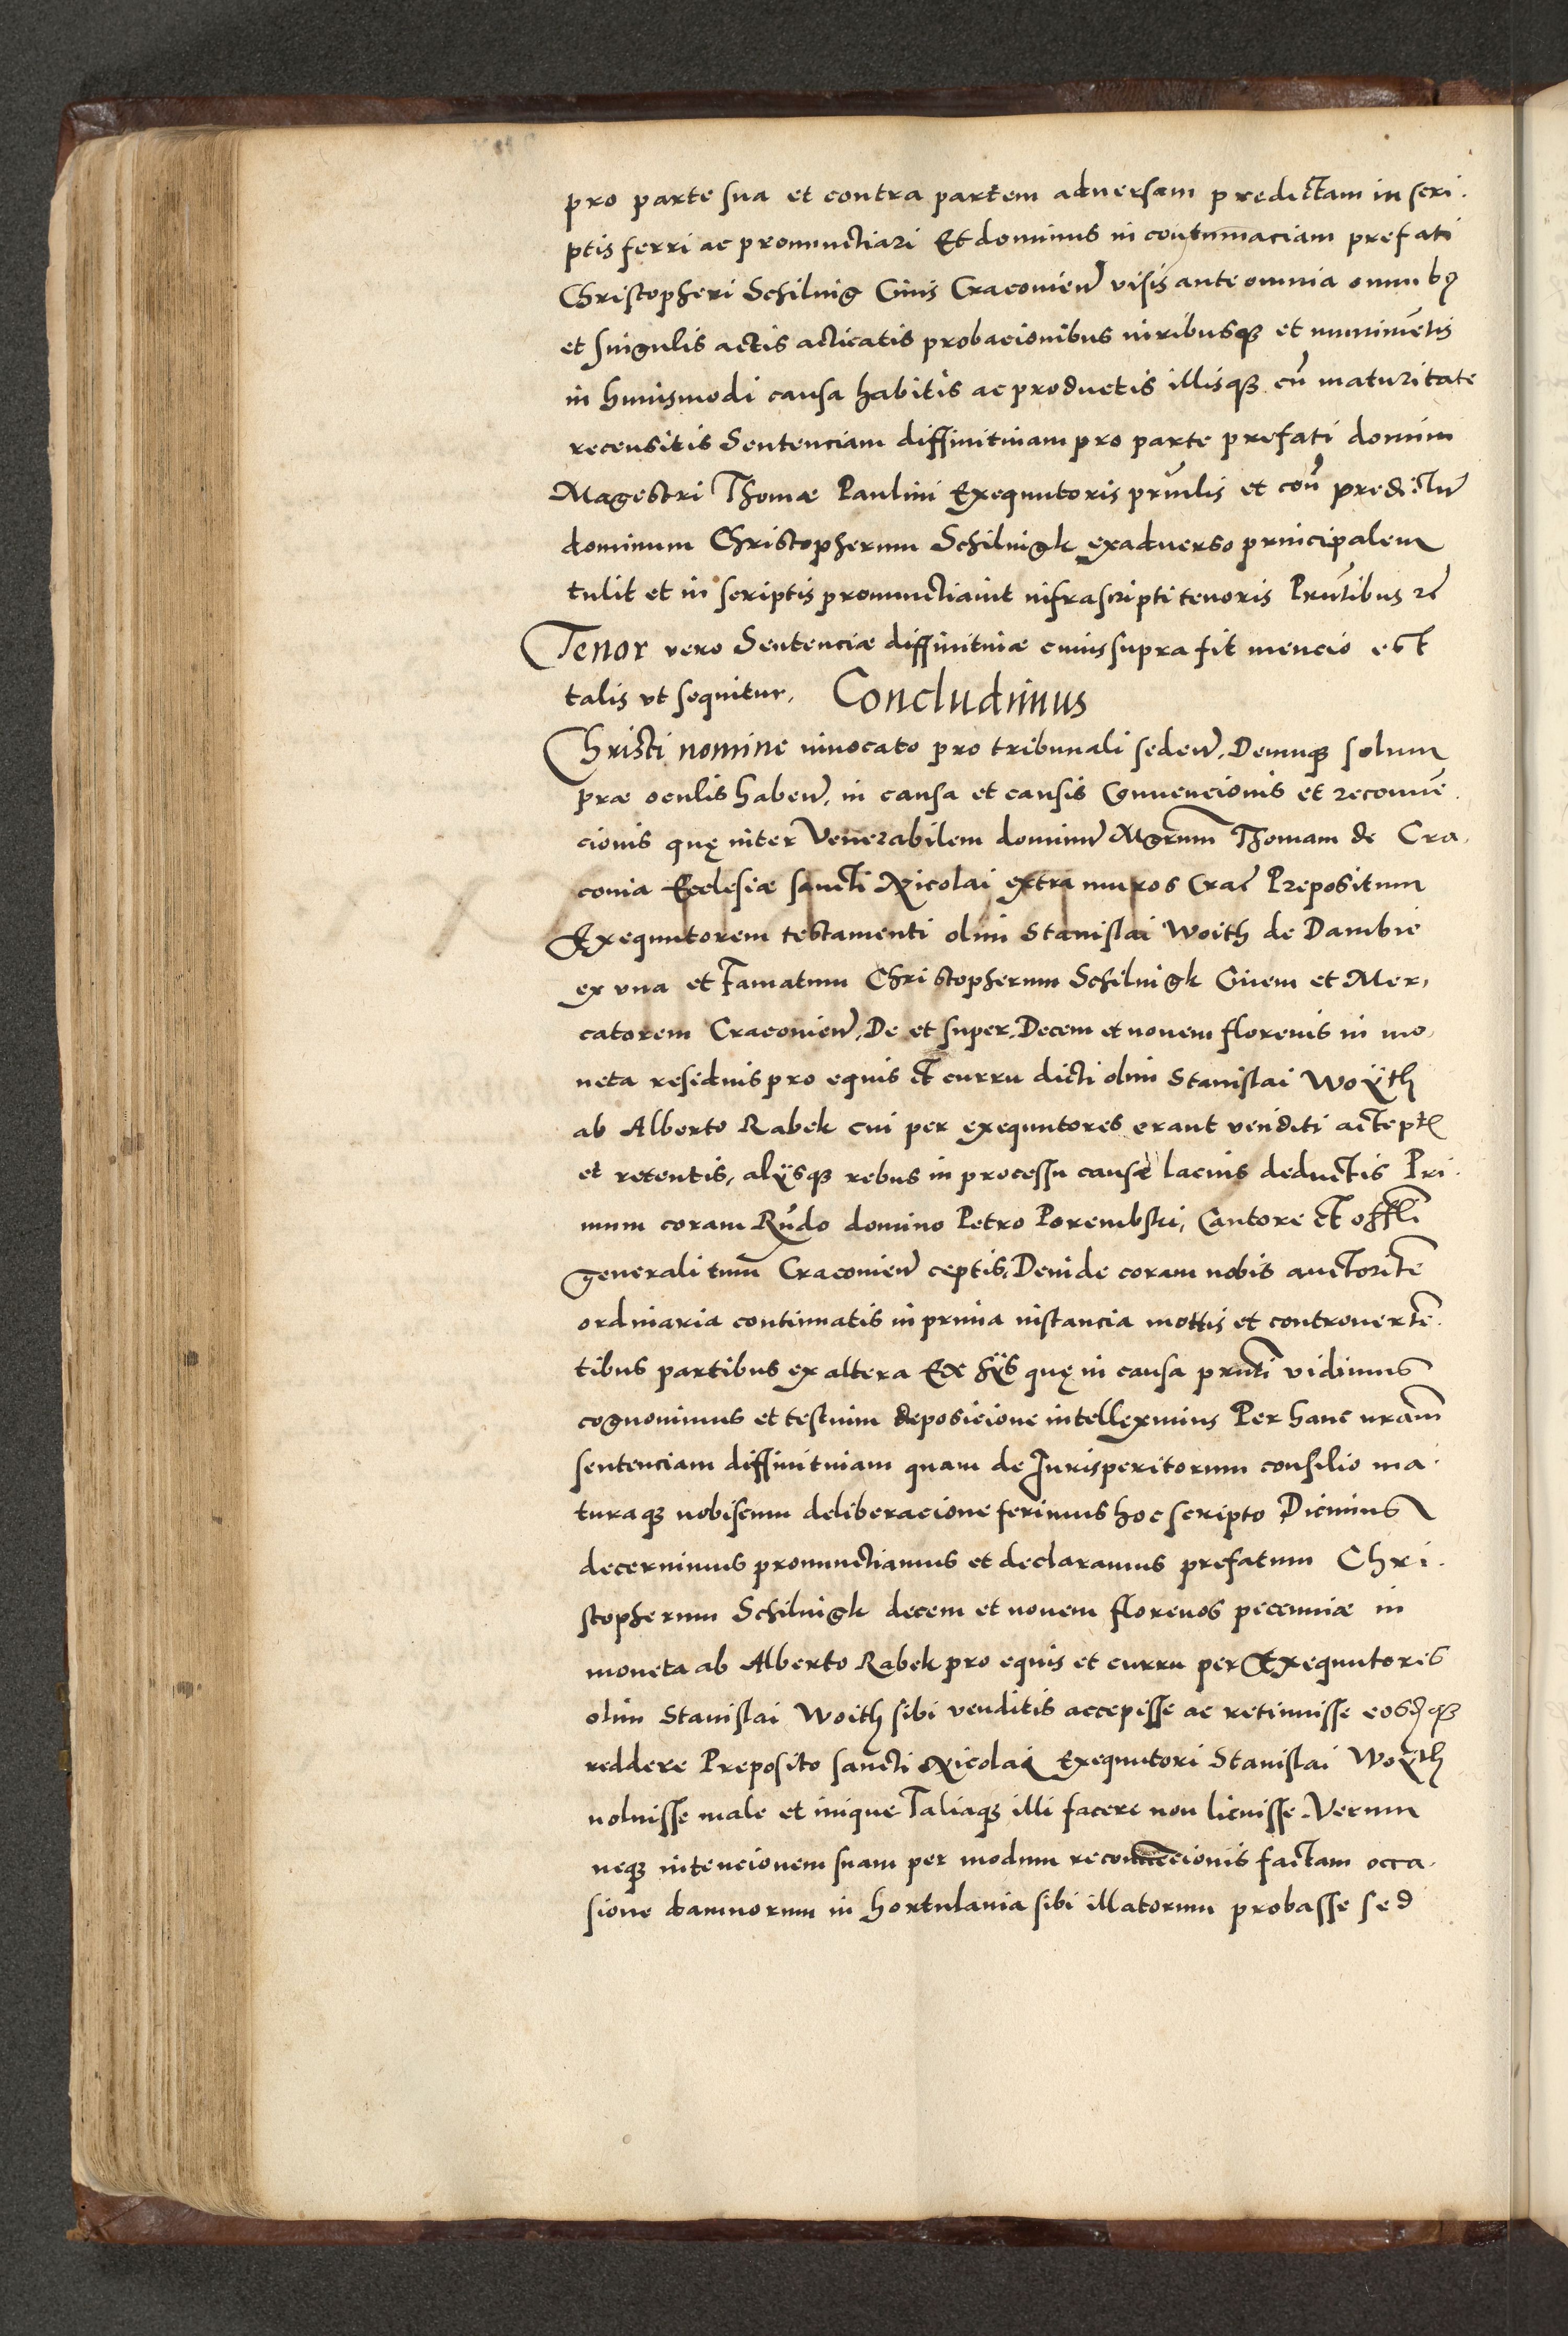 pro parte sua et contra partem aduersam predictam in scri.
ptis ferri ac pronunctiari Et dominus in contumaciam prefati
Christopheri Schilnig Ciuis Cracovien̄ visis ante omnia omnibꝫ
et singulis actis acticatis probacionibus iuribusqꝫ et munimētis
in huiusmodi causa habitis ac productis illisqꝫ cū maturitate
recensitis Sentenciam diffinitiuam pro parte prefati domini
Magestri Thomæ Paulini Exequutoris prn̄lis et con̄ predictū
dominum Christopherum Schilnigk exaduerso principalem
tulit et in scriptis pronunctiauit infrascripti tenoris Prn̄tibus
Tenor vero Sentenciæ diffinitiuæ cuius supra fit mencio est
talis vt sequitur, Concludimus
Christi nomine inuocato pro tribunali seden̄. Deumqꝫ solum
præ oculis haben̄, in causa et causis Conuencionis et reconuē
cionis quę inter Venerabilem dominū Mgrum Thomam de Cra,
couia Ecclesiæ sancti Nicolai extra muros Crac̄ Prepositum
Exequutorem testamenti olim Stanislai Woith de Dambie
ex vna et Famatum Christopherum Schilnigk Ciuem et Mer,
catorem Cracovien̄, De et super, Decem et nouem florenis in mo,
neta residuis pro equis et curru dicti olim Stanislai Woÿth
ab Alberto Rabek cui per exequutores erant venditi
et retentis, alÿsqꝫ rebus in processu causæ lacius deductis Pri.
mum coram Rn̄do domino Petro Porembski, Cantore et offli
generali tum Cracovien̄ ceptis, Deinde coram nobis auctoritē
ordinaria continuatis in prima instancia mottis et controuertē.
tibus partibus ex altera Ex hÿs quę in causa prn̄ti vidimus
cognouimus et testium deposicione intelleximus Per hanc nr̄am
sentenciam diffinitiuam quam de Iurisperitorum consilio ma.
turaqꝫ nobiscum deliberacione ferimus hoc scripto Dicimus
decernimus pronunctiamus et declaramus prefatum Chri.
stopherum Schilnigk decem et nouem florenos pecuniæ in
moneta ab Alberto Rabek pro equis et curru per Exequutores
olim Stanislai Woith sibi venditis accepisse ac retinuisse eosdqꝫ
reddere Preposito sancti Nicolai Exequutori Stanislai Woÿth
noluisse male et inique Taliaqꝫ illi facere non licuisse. Verum
neqꝫ intencionem suam per modum reconuēcionis factam occa.
sione damnorum in hortulania sibi illatorum probasse sed